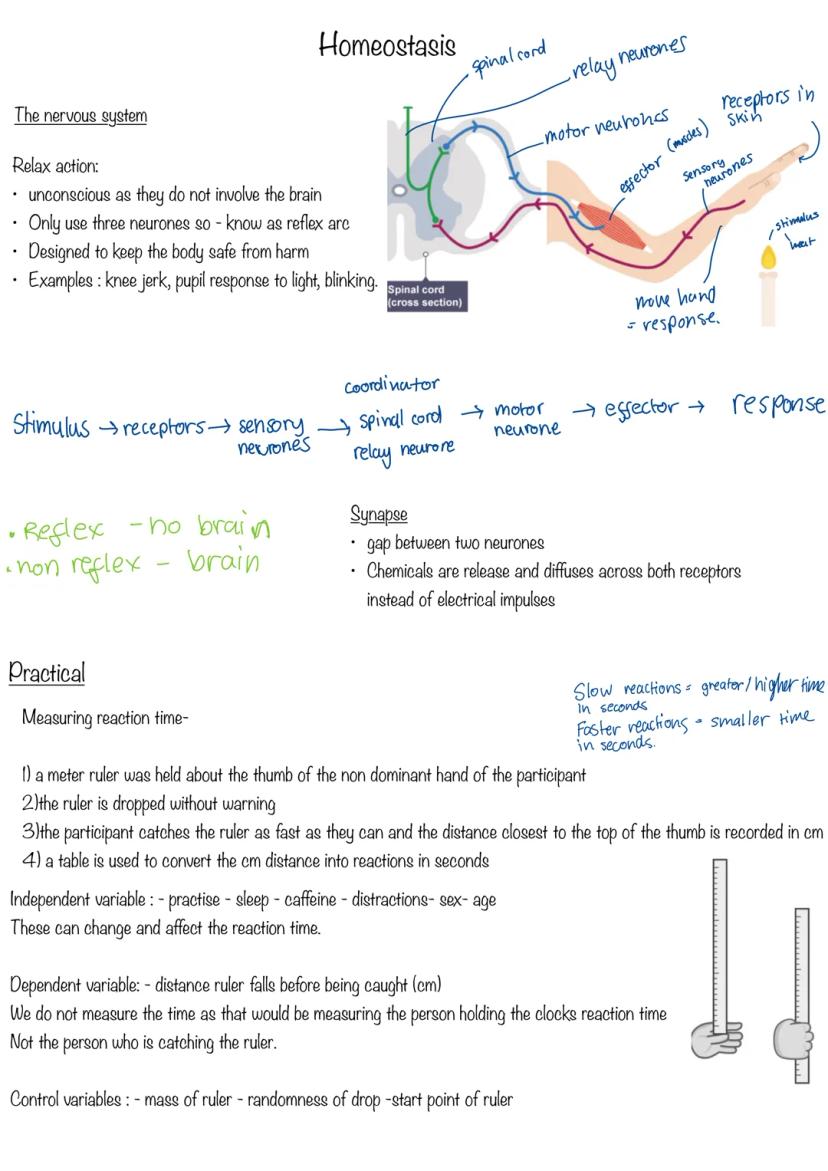 Homeostasis
spinal cord
relay neurones
The nervous system
receptors in
skin
motor neurones
effector (muscles)
sensory
neurones
Relax action:
• unconscious as they do not involve the brain
• Only use three neurones so - know as reflex arc
• Designed to keep the body safe from harm
• Examples : knee jerk, pupil response to light, blinking.
stimulus
heat
Spinal cord
(cross section)
move hand
= response.
coordinator
Stimulus → receptors → sensory neurones → spinal cord relay neurone → motor neurone → effector → response
• Reflex - no brain
• non reflex - brain
Synapse
• gap between two neurones
• Chemicals are release and diffuses across both receptors
instead of electrical impulses
Practical
Slow reactions = greater/higher time
in seconds
Faster reactions = smaller time
in seconds.
Measuring reaction time-
1) a meter ruler was held about the thumb of the non dominant hand of the participant
2)the ruler is dropped without warning
3)the participant catches the ruler as fast as they can and the distance closest to the top of the thumb is recorded in cm
4) a table is used to convert the cm distance into reactions in seconds
Independent variable : - practise - sleep - caffeine - distractions- sex- age
These can change and affect the reaction time.
Dependent variable: - distance ruler falls before being caught (cm)
We do not measure the time as that would be measuring the person holding the clocks reaction time
Not the person who is catching the ruler.
Control variables : - mass of ruler - randomness of drop -start point of ruler